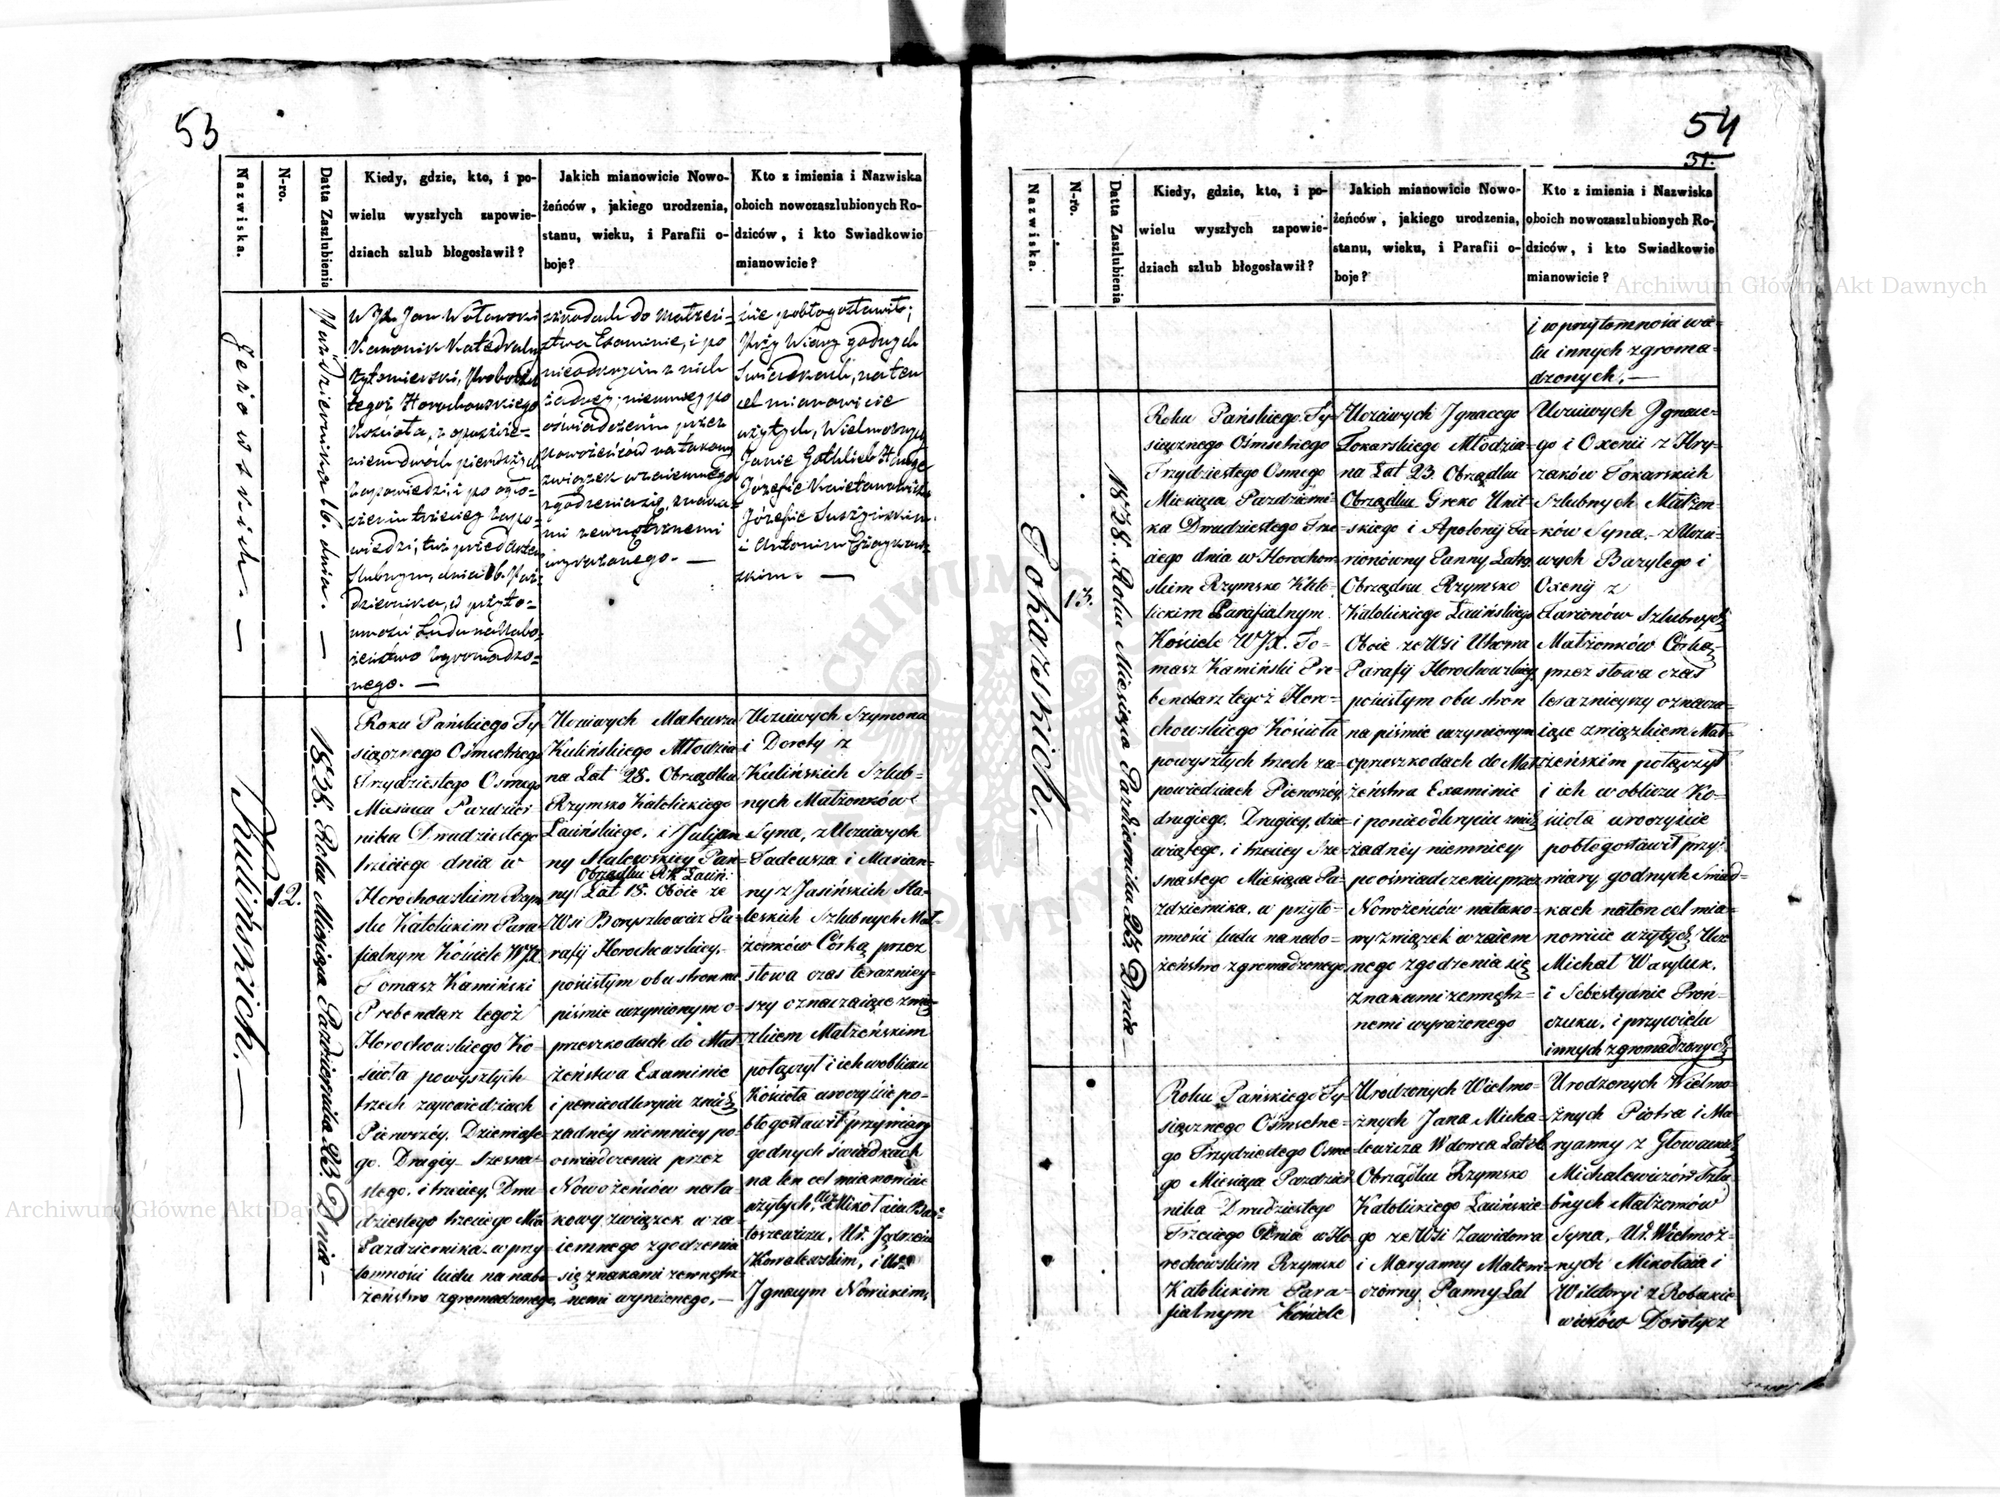 53
Nazwiska.
N-ro.
Datta Zaszlubienia
Kiedy, gdzie, kto, i po-
wielu wyszłych zapowie-
dziach szlub błogosławił?
Jakich mianowicie Nowo-
żeńców, jakiego urodzenia,
stanu, wieku, i Parafii o-
boje?
Kto z imienia i Nazwiska
oboich nowozaszlubionych Ro-
dziców, i kto Swiadkowie
mianowicie?
Października 16. dnia. —
WJX. Jan Wołowski
Kanonik Katedralny
Żytomierski,
tegoż Horochowskiego
Kościoła, z opuszcze-
niem dwóch pierwszych
Zapowiedzi i po ogło-
szeniu trzeciej Zapo-
wiedzi, tuż przed
Szlubnym, dnia 16. Paź-
dziernika, w przyto-
mności Ludu na Nabo-
żeństwo Zgromadzo-
nego. —
szkodach do Małżeń-
stwa Examinie, i po
nieodkryciu z nich
żadney, niemniey po
oświadczeniu przez
Nowożeńców na takowy
związek wzaiemnego
zgodzenia się, znaka-
mi zewnętrznemi
wyrażonego. —
nie pobłogosławił;
Przy Wiary godnych
Swiadkach, na ten
cel mianowicie
użytych, Wielmożnych
Janie Gothlieb
Józefie
Józefie
i Antonim
skim. —
Kulińskich. —
12.
1838. Roku Miesiąca Października 23. Dnia —
Roku Pańskiego Ty-
siącznego Ośmsetnego
Trzydziestego Osmego
Miesiąca Paździer
nika Dwudziestego
trzeciego dnia w
Horochowskim Rzym
sko Katolickim Para
fialnym Kościele WJX
Tomasz Kamiński
Prebendarz tegoż
Horochowskiego Ko-
ścioła powyszłych
trzech zapowiedziach
Pierwszéy, Dziewiąte-
go. Drugiy Szesna-
stego, i trzeciey, Dwu
dziestego trzeciego Mca
Października w przy
tomności ludu na nabo
żeństwo zgromadzonego,
Uczciwych Mateusza
Kulińskiego Młodzia
na Lat 28. Obrządku
Rzymsko Katolickiego
Łacińskiego, i Julijan
ny Malewskiey Pan-
Obrządku RK Łaciń:
ny Lat 18. Oboie ze
Wsi Boryszkowicz Pa-
rafij Horochowskiey.
pościstym obu stron na
piśmie uczynionym o-
przeszkodach do Mał
żeństwa Examinie
i ponieodkryciu znich
żadnéy niemniey po-
oswiadczeniu przez
Nowożeńców nata-
kowy związek wza-
iemnego zgodzenia
się znakami zewnętrz-
nemi wyrażonego, —
Uczciwych Szymona
i Doroty z
Kulińskich Szlub-
nych Małżonków
Syna, z Uczciwych
Tadeusza i Marian-
ny z Jasińskich Ma-
leskich Szlubnych Mał-
żonków Córką, przez
słowa czas terazniey-
szy oznaczaiące zwią-
zkiem Małżeńskim
połączył i ich wobliczu
Kościoła uroczyscie po-
błogosławił przy wiary
godnych świadkach
na ten cel mianowicie
użytych, Ucz Mikołaiu Bar-
toszewiczu, Ur. Jędrzeiu
Kowalewskim, i Ur.
Ignacym Nowickim,
54
31.
Nazwiska.
N-ro.
Datta Zaszlubienia
Kiedy, gdzie, kto, i po-
wielu wyszłych zapowie-
dziach szlub błogosławił?
Jakich mianowicie Nowo-
żeńców, jakiego urodzenia,
stanu, wieku, i Parafii o-
boje?
Kto z imienia i Nazwiska
oboich nowozaszlubionych Ro-
dziców, i kto Swiadkowie
mianowicie?
i w przytomności wie-
lu innych zgroma-
dzonych. —
Tokarskich. —
13.
1838. Roku Miesiąca Października 23 Dnia —
Roku Pańskiego Ty-
siącznego Ośmsetnego
Trzydziestego Osmego
Miesiąca Październi-
ka Dwudziestego Trze
ciego dnia w Horochow-
skim Rzymsko Kato-
lickim Parafialnym
Kościele WJX. To-
masz Kamiński Pre-
bendarz tegoż Horo-
chowskiego Kościoła
powyszłych trzech za-
powiedziach Pierwszéy,
drugiego. Drugiey, dzie
wiątego, i trzeciey Sze
snastego Miesiąca Pa-
ździernika, w przyto-
mności ludu na nabo-
żeństwo zgromadzonego,
Uczciwych Ignacego
Tokarskiego Młodzia-
na Lat 23. Obrządku
Obrządku Greko Unit-
skiego i Apolonij Ła-
rionówny Panny Lat 19
Obrządku Rzymsko
Katolickiego Łacińskiego
Oboie ze Wsi Uhowa
Parafij Horochowskiey
pościstym obu stron
na piśmie uczynionym
oprzeszkodach do Mał
żeństwa Examinie
i ponieodkryciu znich
żadnéy niemniey
po oświadczeniu przez
Nowożeńców natako-
wy związek wzaiem
nego zgodzenia się
znakami zewnętrz-
nemi wyrażonego
Uczciwych Ignace-
go i Oxenii z Hry-
zaków Tokarskich
Szlubnych Małżon-
ków Syna, z Uczci-
wych Bazylego i
Oxenij z
Larionów Szlubnych
Małżonków Córką
przez słowa czas
teraznieyszy oznacza-
iące związkiem Mał-
żeńskim połączył
i ich w obliczu Ko-
ścioła uroczyscie
pobłogosławił przy
wiary godnych Swiad-
kach na ten cel mia-
nowicie użytych Ucz
Michał Wasyluk,
i Sebestyanie Proń-
czuku, i przy wielu
innych zgromadzonych
Roku Pańskiego Ty-
siącznego Ośmsetne-
go Trzydziestego Osme-
go Miesiąca Paździer
nika Dwudziestego
Trzeciego Dnia w Ho-
rochowskim Rzymsko
Katolickim Para-
fialnym Kościele
Urodzonych Wielmo-
żnych Jana Micha-
lewicza Wdowca Lat
Obrządku Rzymsko
Katolickiego Łacińskie-
go ze Wsi Zawidowa
i Maryanny Małewi-
czówny Panny Lat
Urodzonych Wielmo-
żnych Piotra i Ma-
ryanny z Głowackich
Michalewiczów Szlu-
bnych Małżonków
Syna, Ur. Wielmoż-
nych Mikołaia i
Wiktoryi z Robakie-
wiczów
Archiwum Główne Akt Dawnych
Archiwum Główne Akt Dawnych